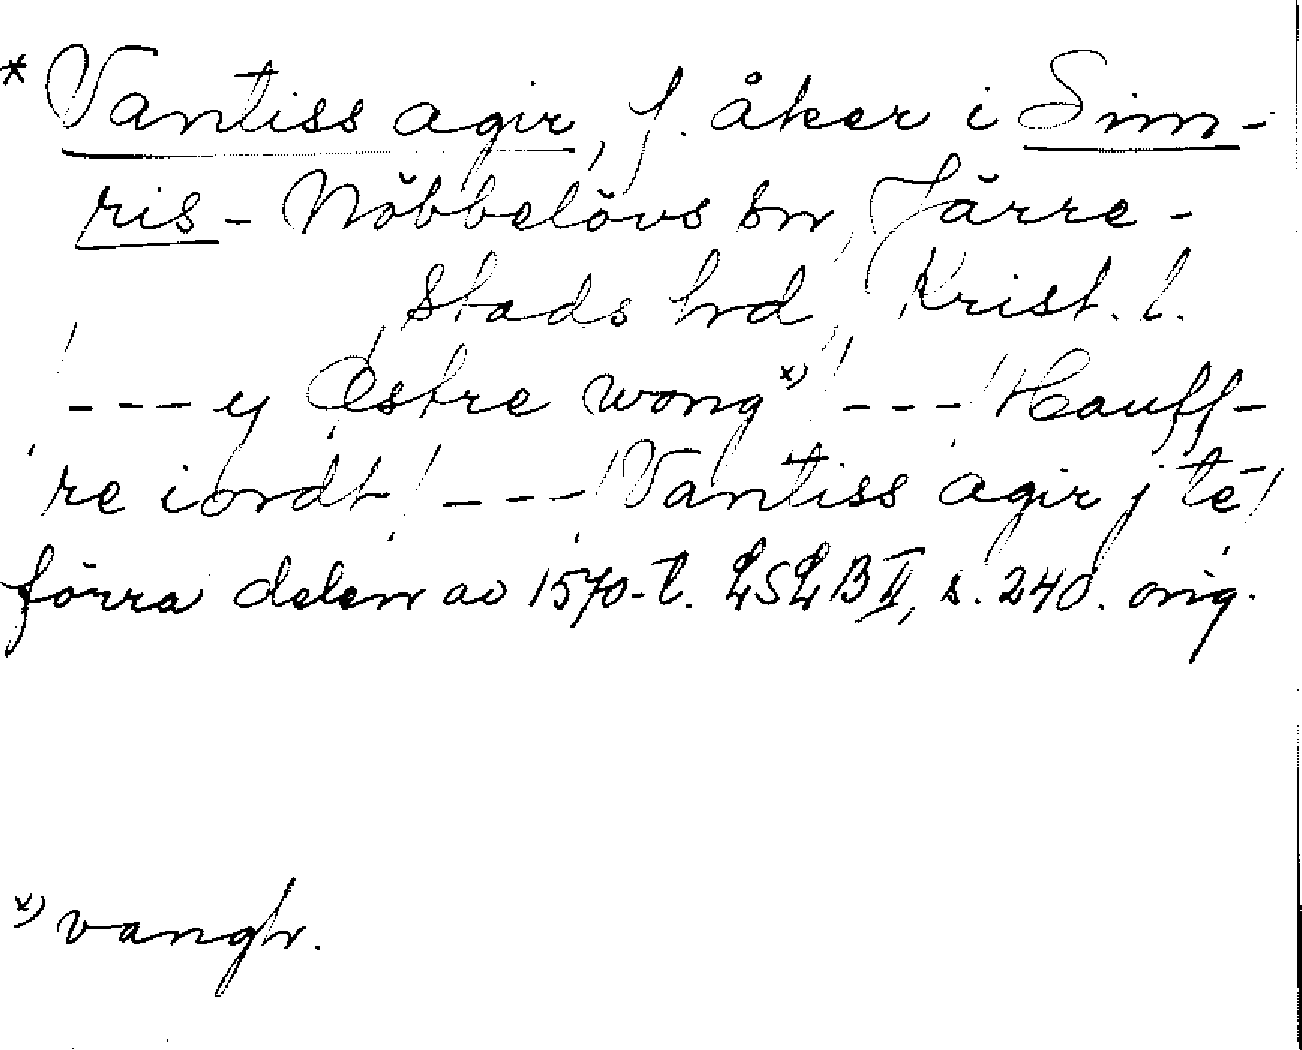 * Vantiss agir, f. åker i Sim-
ris - Nöbbelövs sn, Järre-
stads hrd, Krist. l.
/ - - - y Østre wong x) / - - - / Hauff-
re iordt / - - - / Vantiss agir j tē /
förra delen av 1570-t. LSLB II, s. 240. orig.
x) vangfr.